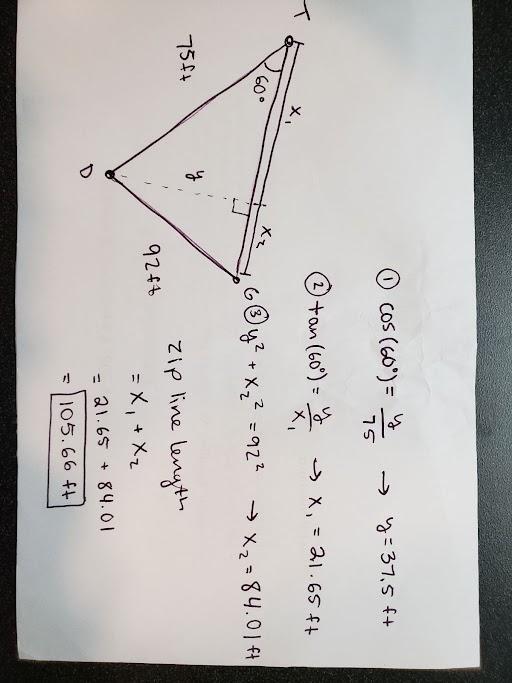 T
75ft
60°
x₁
y
x₂
D
92ft
G
① cos(60°) = y/75 → y = 37.5 ft
② tan(60°) = y/x₁ → x₁ = 21.65 ft
③ y² + x₂² = 92² → x₂ = 84.01 ft
Zip line length
= x₁ + x₂
= 21.65 + 84.01
= 105.66 ft